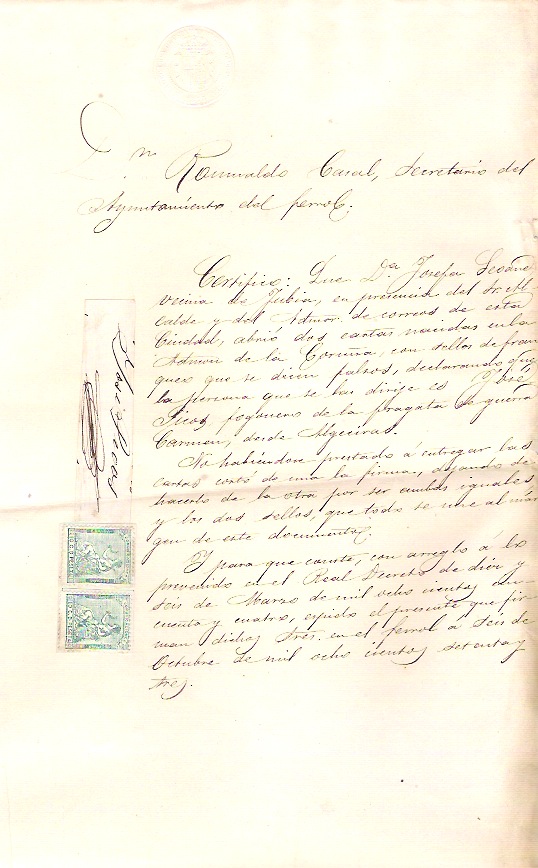 Dn Romualdo Casal, Secretario del
Ayuntamiento del ferrol.
Certifico: Que Da Josefa
vecina de Jubia, en presencia del Sr. Al-
calde y del Admor. de correos de esta
Ciudad, abrió dos cartas nacidas en la
Admon de la Coruña, con sellos de fran
queo que se dicen falsos, declarando que
la persona que se las dirige es José
Picos, fogonero de la fragata de guerra
Carmen, desde Algeciras.
No habiendose prestado á entregar las
cartas cortó de una la firma, dejando de
hacerlo de la otra por ser ambas iguales,
y los dos sellos, que todo se une al már
gen de este documento.
Y para que conste, con arreglo á lo
prevenido en el Real Decreto de diez y
seis de Marzo de mil ocho cientos cin-
cuenta y cuatro, espido el presente que fir
man dichos tres en el ferrol á seis de
Octubre de mil ocho cientos setenta y
tres.
José Picos